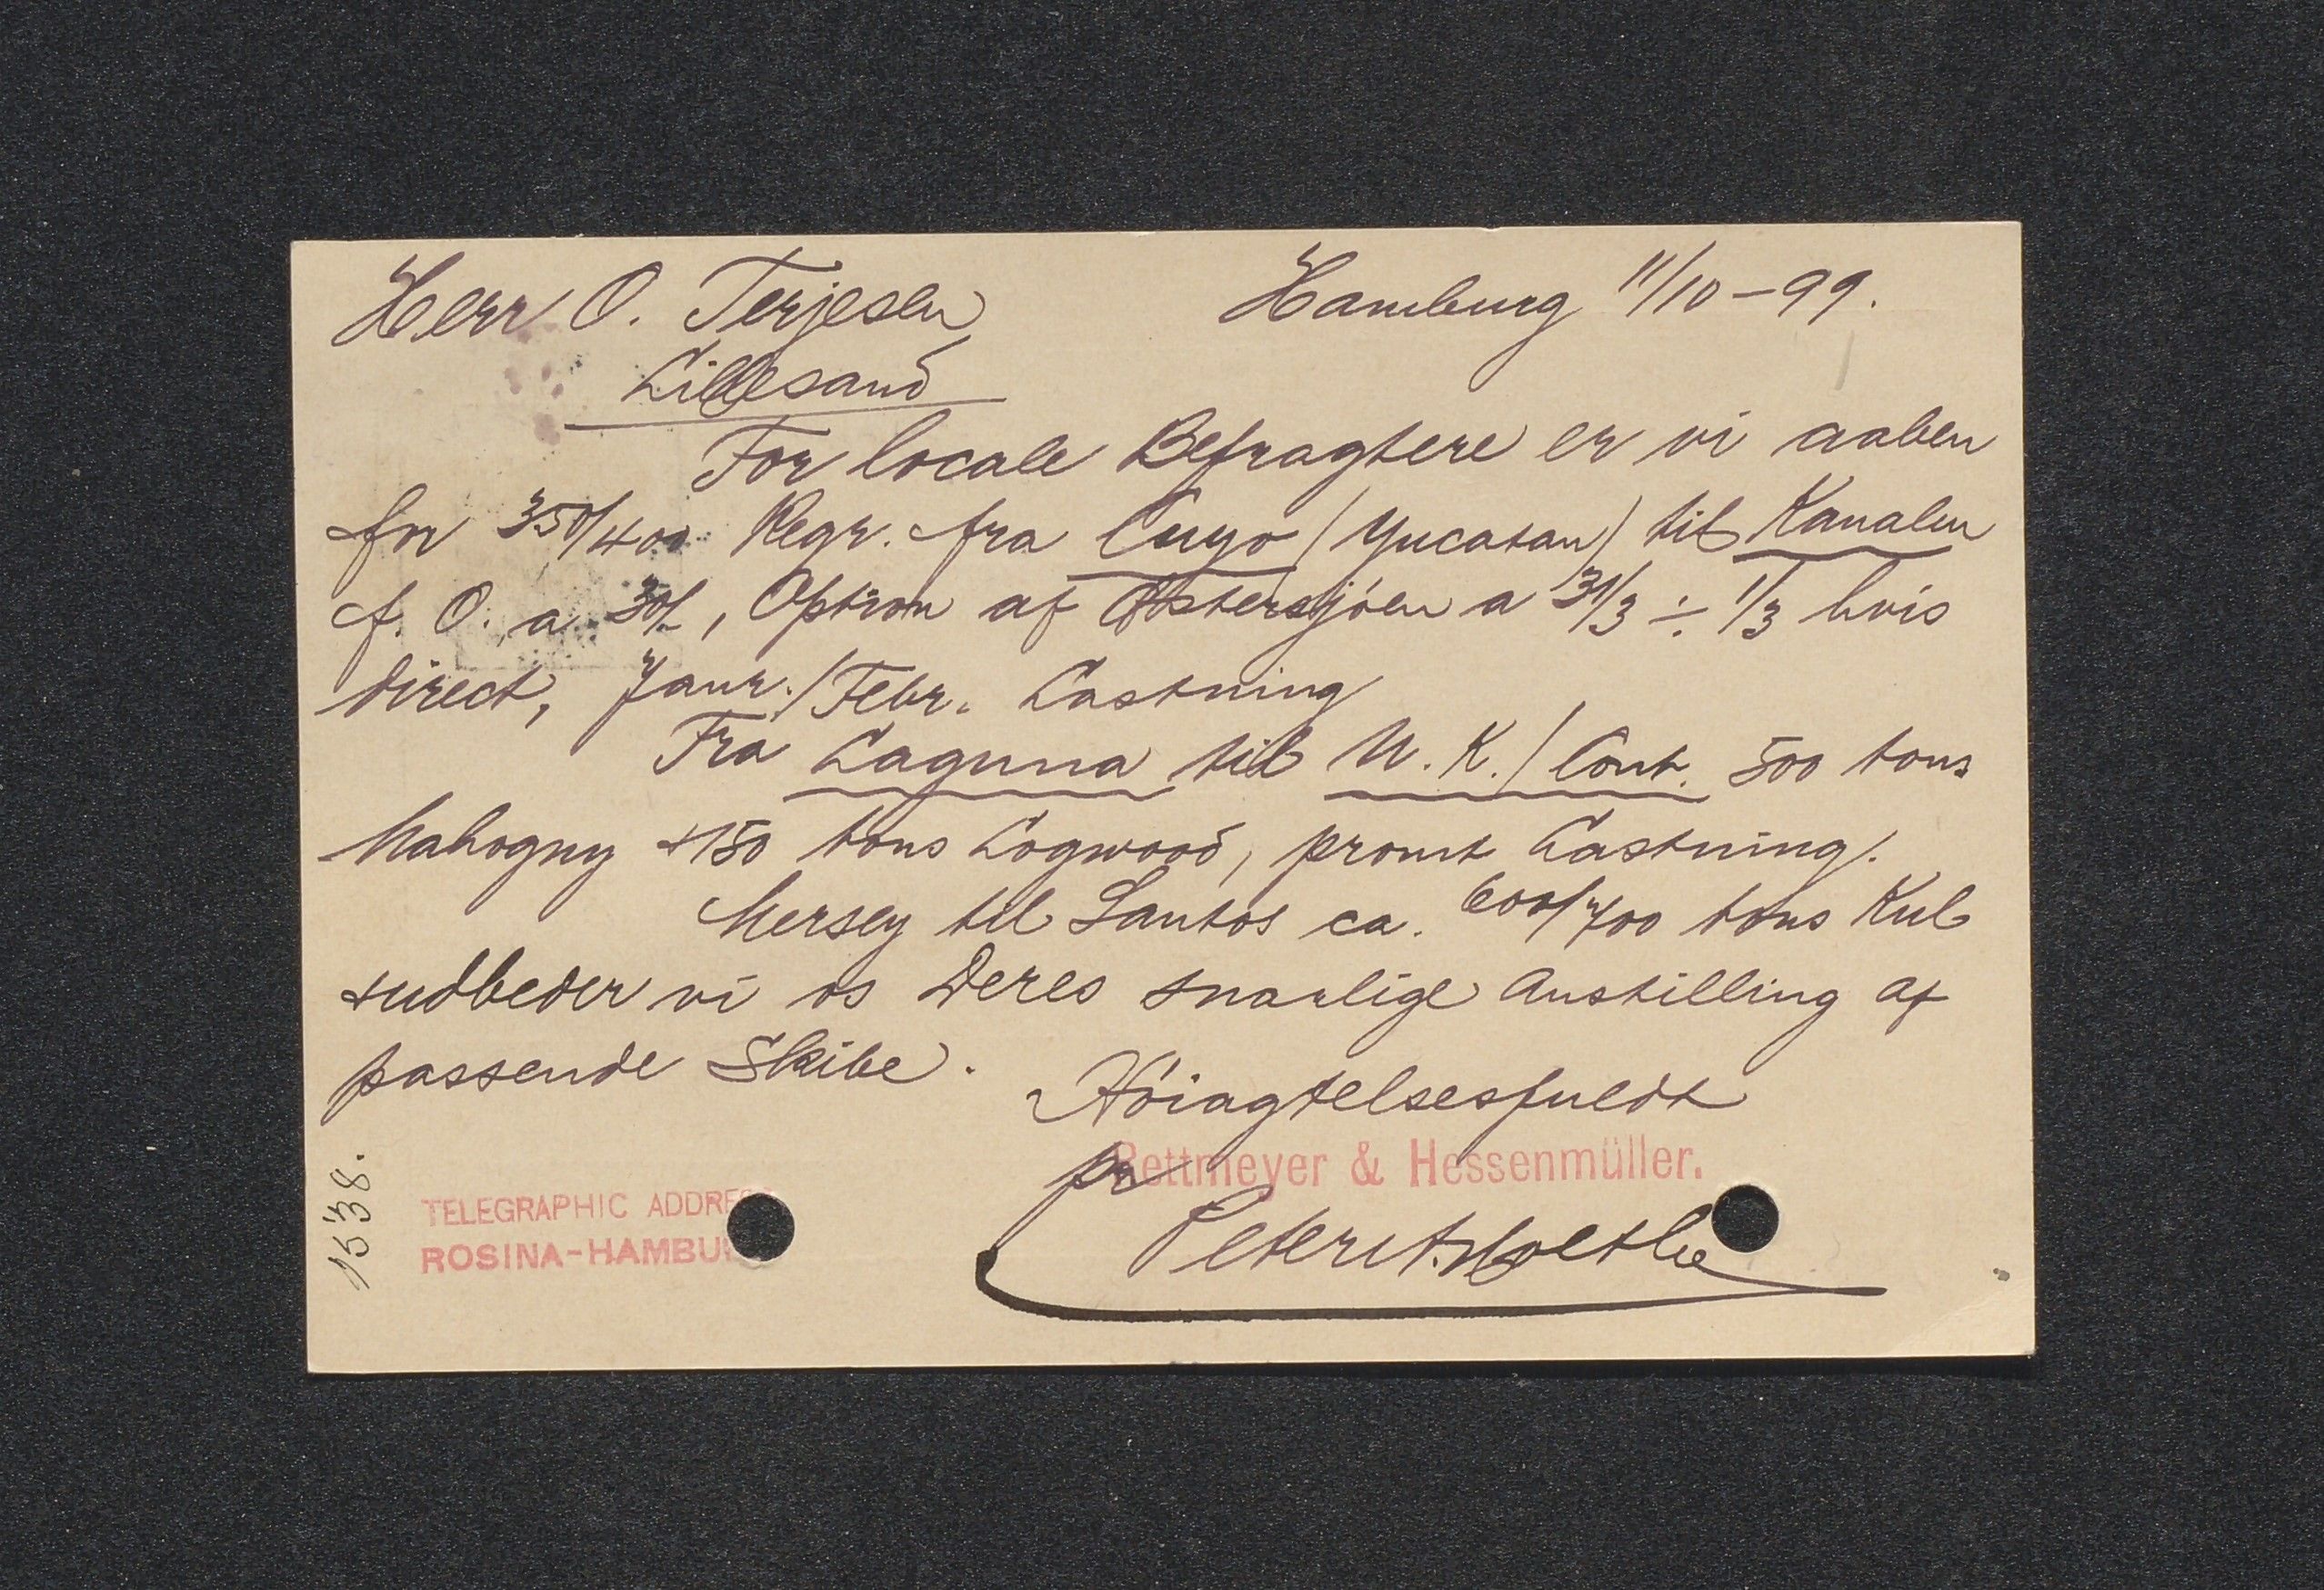 Herr O. Terjesen Hamburg 11/10-99.
Lillesand
For locale Befragtere er vi aaben
for 350/400 Regr. fra Cuyo (Yucatan) til Kanalen
f. O. a 30/-, Option af Østersjöen a 31/3 ÷ 1/3 hvis
direct, Janr./Febr. Lastning
Fra Laguna til U.K./Cont. 500 tons
Mahogny + 150 tons Logwood, promt Lastning.
Mersey til Santos ca. 600/700 tons Kul
+ udbeder vi os Deres snarlige Anstilling af
passende Skibe.
Höiagtelsesfuldt
pr Rettmeyer & Hessenmüller.
Peter
TELEGRAPHIC ADDRE
ROSINA-HAMBU
1538.